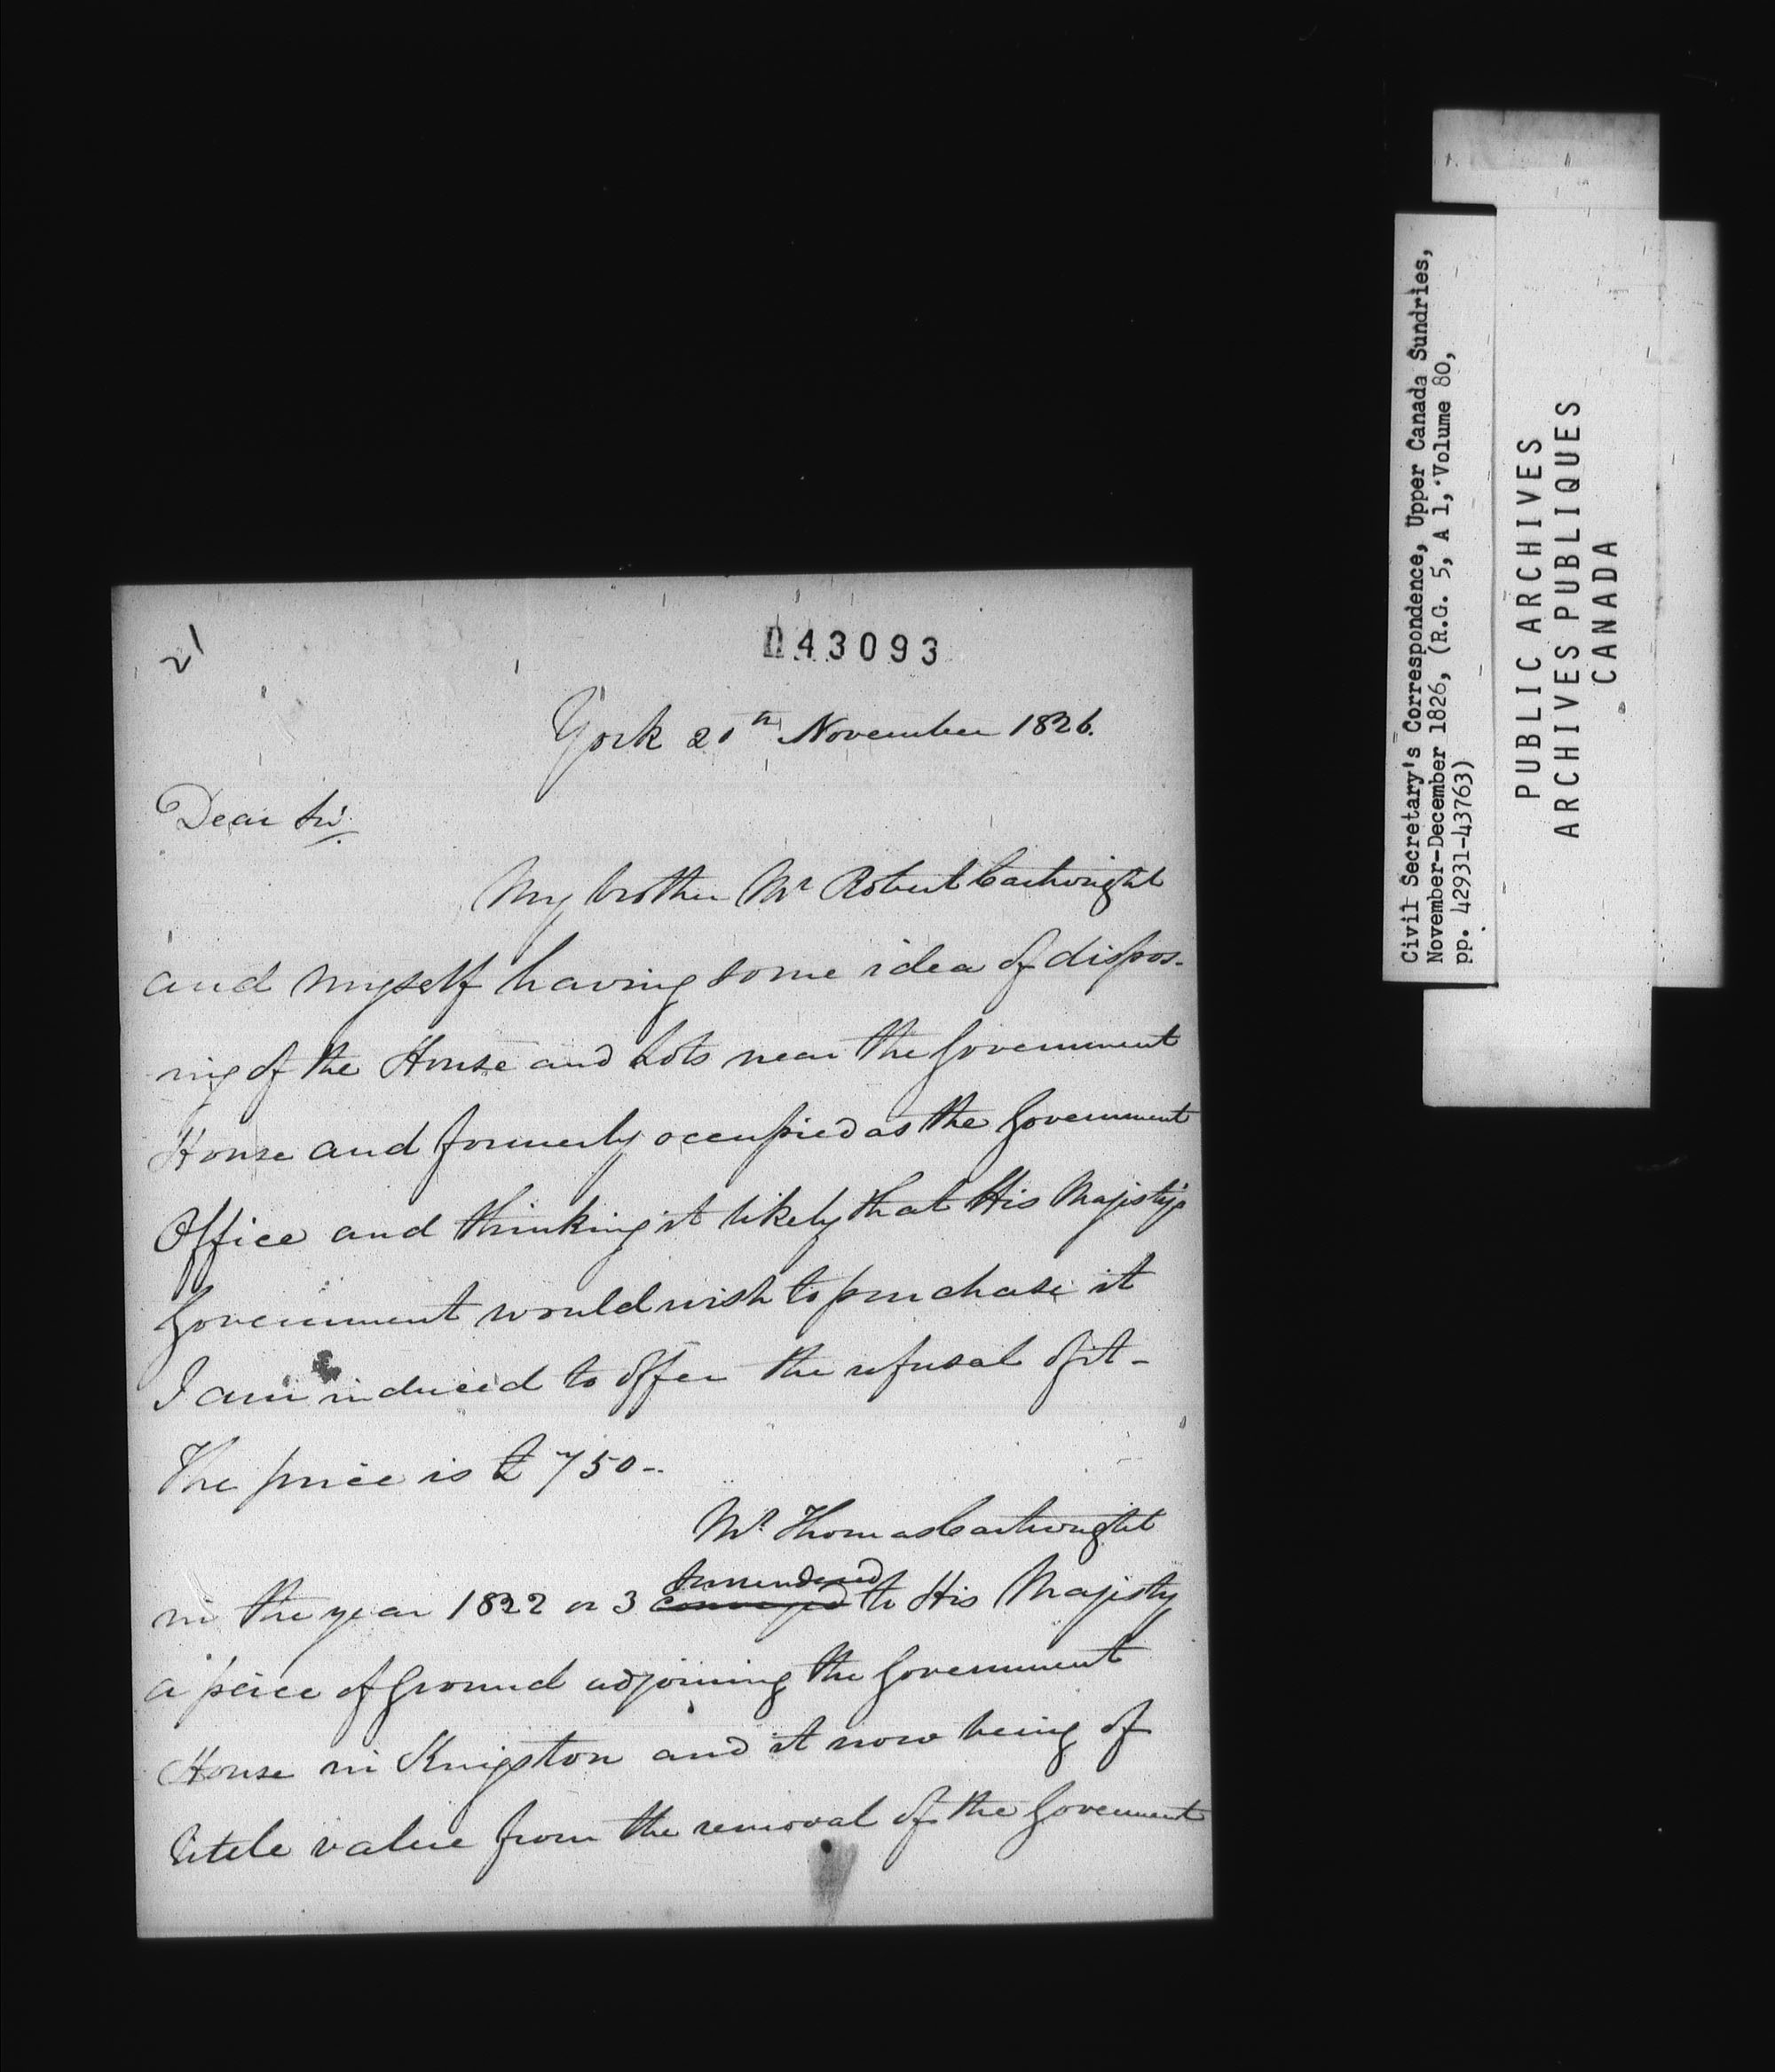 21
043093
York 20th November 1826.
Dear Sir
My brother Mr Robert Cartwright
and myself having some idea of dispos-
ing of the House and Lots near the Government
House and formerly occupied as the Government
Office and thinking it likely that His Majesty's
Government would wish to purchase it
I am induced to offer the refusal of it -
The price is £ 750 -
Mr Thomas Cartwright
surrendered
in the year 1822 or 3 conveyed to His Majesty
a peice of Ground adjoining the Government
House in Kingston and it now being of
little value from the removal of the Government
Civil Secretary's Correspondence, Upper Canada Sundries,
November-December 1826, (R.G. 5, A 1, Volume 80,
pp. 42931-43763)
PUBLIC ARCHIVES
ARCHIVES PUBLIQUES
CANADA